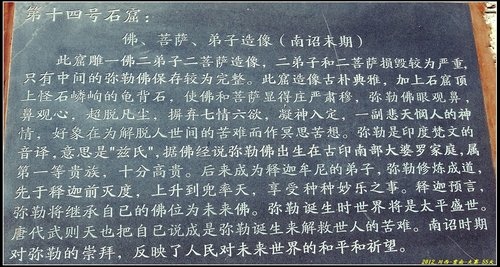 第十四号石窟：
佛、菩萨、弟子造像（南诏末期）
此窟雕一佛二弟子二菩萨造像，二弟子和二菩萨损毁较为严重，
只有中间的弥勒佛保存较为完整。此窟造像古朴典雅，加上石窟顶
上怪石嶙峋的龟背石，使佛和菩萨显得庄严肃穆，弥勒佛眼观鼻，
鼻观心，超脱凡尘，摒弃七情六欲，凝神入定，一副悲天悯人的神
情，好象在为解脱人世间的苦难而作冥思苦想。弥勒是印度梵文的
音译，意思是"兹氏"，据佛经说弥勒佛出生在古印南部大婆罗家庭，属
第一等贵族，十分高贵。后来成为释迦牟尼的弟子，弥勒修炼成道，
先于释迦前灭度，上升到兜率天，享受种种妙乐之事。释迦预言，
弥勒将继承自己的佛位为未来佛。弥勒诞生时世界将是太平盛世。
唐代武则天也把自己说成是弥勒诞生来解救世人的苦难。南诏时期
对弥勒的崇拜，反映了人民对未来世界的和平和祈望。